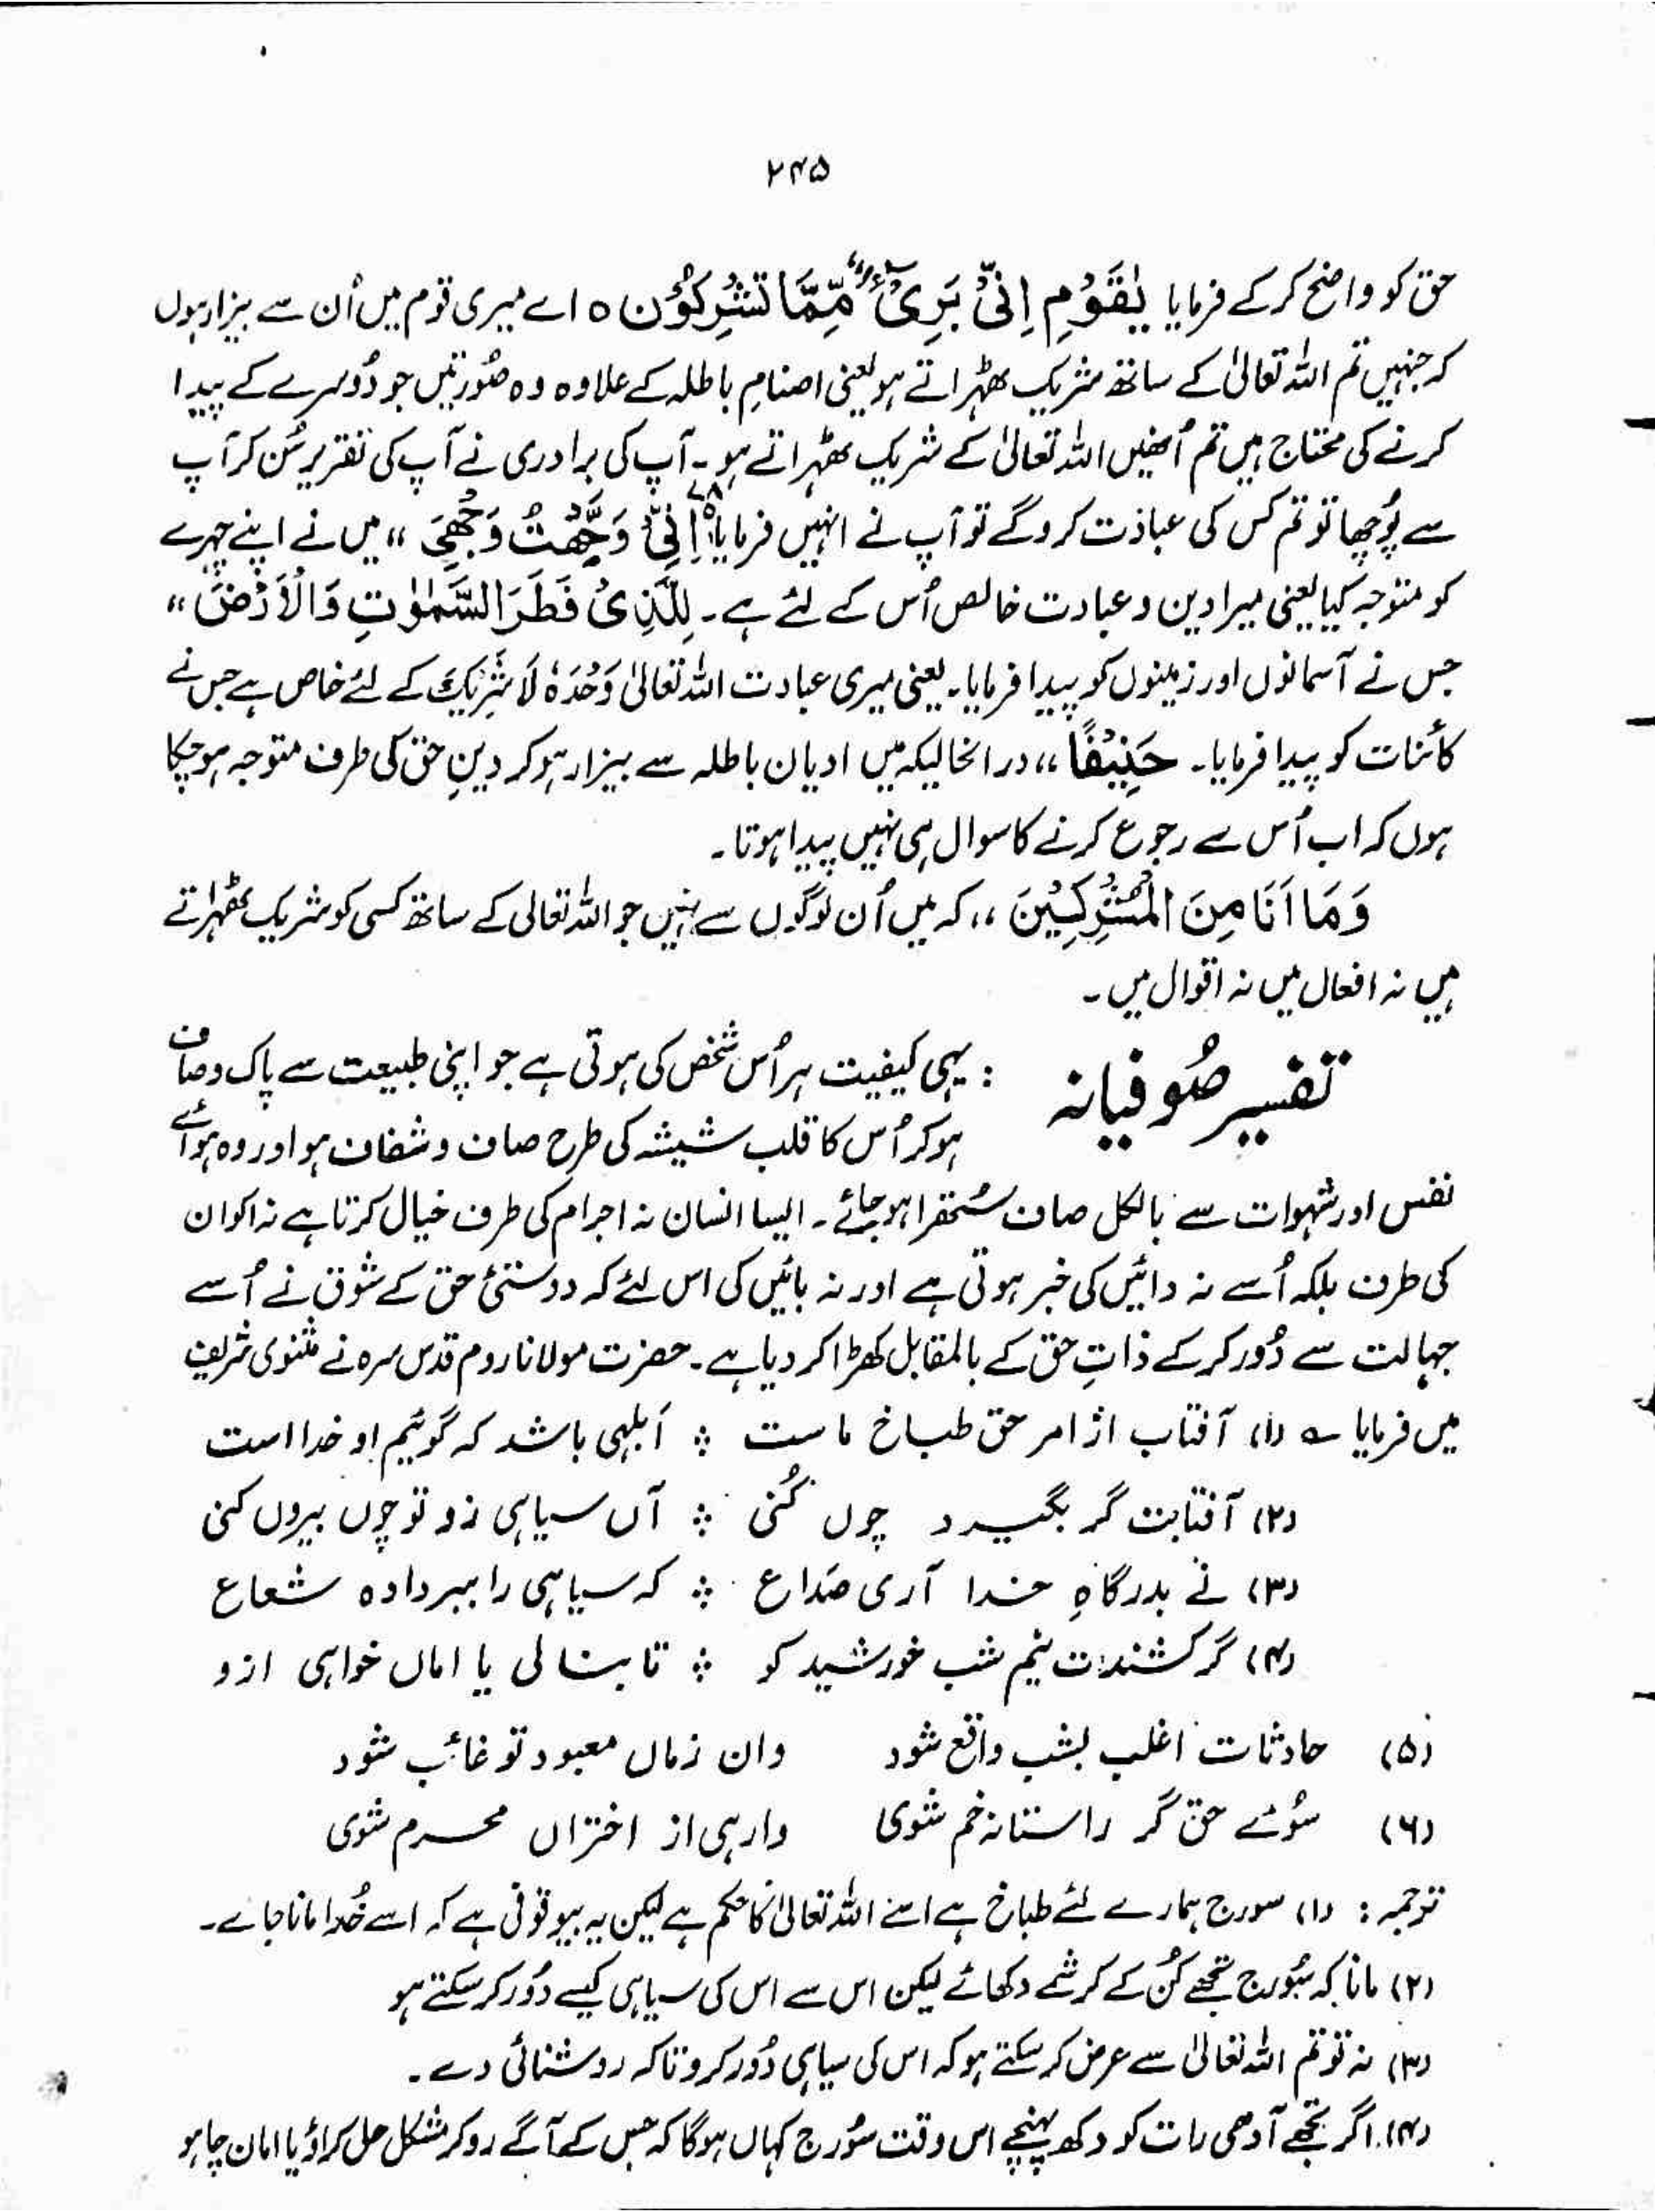 ۲۴۵
حق کو واضح کرکے فرمایا یٰقَوْمِ اِنِّیْ بَرِیْٓءٌ مِّمَّا تُشْرِکُوْن ہ اے میری قوم میں اُن سے بیزار ہوں
کہ جنہیں تم اللہ تعالیٰ کے ساتھ شریک ٹھہراتے ہو یعنی اصنامِ باطلہ کے علاوہ وہ صُورتیں جو دُوسرے کے پیدا
کرنے کی محتاج ہیں تم اُنھیں اللہ تعالیٰ کے شریک ٹھہراتے ہو۔ آپ کی برادری نے آپ کی تقریر سُن کر آپ
سے پُوچھا تو تم کس کی عبادت کروگے تو آپ نے انہیں فرمایا اِنِّیْ وَجَّهْتُ وَجْهِیَ ،، میں نے اپنے چہرے
کو متوجہ کیا یعنی میرا دین و عبادت خالص اُس کے لئے ہے۔ لِلَّذِیْ فَطَرَ السَّمٰوٰتِ وَالْاَرْضَ ،،
جس نے آسمانوں اور زمینوں کو پیدا فرمایا۔ یعنی میری عبادت اللہ تعالیٰ وَحْدَہٗ لَا شَرِیْکَ کے لئے خاص ہے جس نے
کائنات کو پیدا فرمایا۔ حَنِیْفًا ،، درانحالیکہ میں ادیان باطلہ سے بیزار ہوکر دینِ حق کی طرف متوجہ ہوچکا
ہوں کہ اب اُس سے رجوع کرنے کا سوال ہی نہیں پیدا ہوتا۔
وَمَا اَنَا مِنَ الْمُشْرِکِیْنَ ،، کہ میں اُن لوگوں سے نہیں جو اللہ تعالیٰ کے ساتھ کسی کو شریک ٹھہراتے
ہیں نہ افعال میں نہ اقوال میں۔
تفسیر صُوفیانہ : یہی کیفیت ہر اُس شخص کی ہوتی ہے جو اپنی طبیعت سے پاک و صاف
ہوکر اُس کا قلب شیشہ کی طرح صاف و شفاف ہو اور وہ ہوائے
نفس اور شہوات سے بالکل صاف سُتھرا ہوجائے۔ ایسا انسان نہ اجرام کی طرف خیال کرتا ہے نہ اکوان
کی طرف بلکہ اُسے نہ دائیں کی خبر ہوتی ہے اور نہ بائیں کی اس لئے کہ دوستئ حق کے شوق نے اُسے
جہالت سے دُور کرکے ذاتِ حق کے بالمقابل کھڑا کردیا ہے۔ حضرت مولانا روم قدس سرہ نے مثنوی شریف
میں فرمایا ؎ (۱) آفتاب از امر حق طباخ ما ست ؞ اَبلہی باشد کہ گوئیم او خدا است
(۲) آفتابت گر بگیرد چوں کُنی ؞ آں سیاہی زو تو چوں بیروں کنی
(۳) نے بدرگاہِ خدا آری صَداع ؞ کہ سیاہی را ببر دادہ شعاع
(۴) گر کشندت نیم شب خورشید کو ؞ تا بنالی یا اماں خواہی ازو
(۵) حادثات اغلب بشب واقع شود وان زماں معبود تو غائب شود
(۶) سُوئے حق گر راستانہ خم شوی وارہی از اختراں محرم شوی
ترجمہ : (۱) سورج ہمارے لئے طباخ ہے اسے اللہ تعالیٰ کا حکم ہے لیکن یہ بیوقوفی ہے کہ اسے خُدا مانا جاے۔
(۲) مانا کہ سُورج تجھے کُن کے کرشمے دکھائے لیکن اس سے اس کی سیاہی کیسے دُور کرسکتے ہو
(۳) نہ تو تم اللہ تعالیٰ سے عرض کرسکتے ہو کہ اس کی سیاہی دُور کرو تاکہ روشنائی دے۔
(۴) اگر تجھے آدھی رات کو دکھ پہنچے اس وقت سُورج کہاں ہوگا کہ جس کے آگے رو کر مشکل حل کراؤ یا امان چاہو